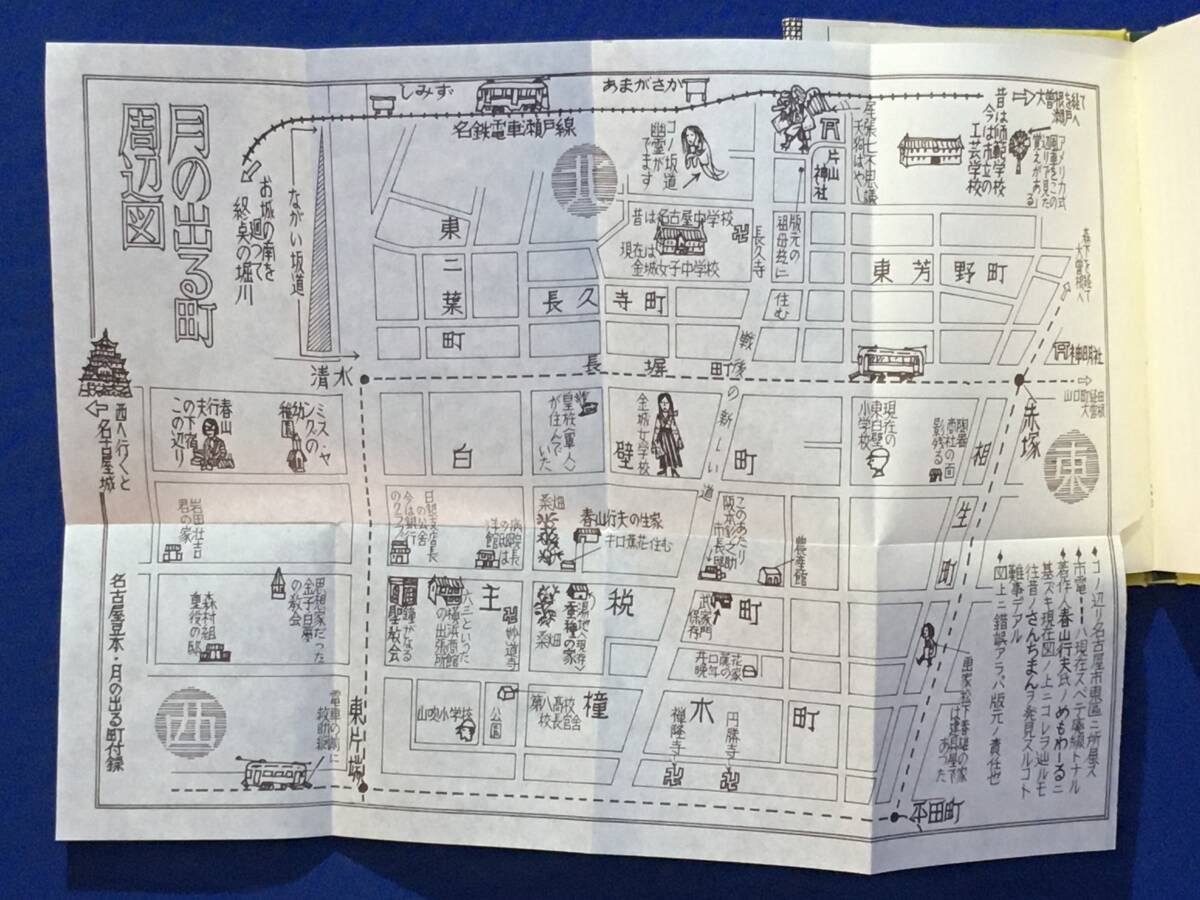 月の出る町
周辺図
しみず
名鉄電車瀬戸線
あまがさか
お城の南を
廻って
終点の堀川
ながい坂道
コノ坂道
幽霊が
でます
片山
神社
尾張七不思議
天狗ばやし
昔は
今は市立の
工芸学校
大曽根を経て
瀬戸へ
アメリカ式
風車をこの
辺りで見た
覚えがある
北
昔は名古屋中学校
現在は
金城女子中学校
長久寺
版元の
祖母玆に
住む
東二葉町
長久寺町
東芳野町
清水
長塀町
戦後の新しい道
神明社
赤塚
東
西へ行くと
名古屋城
春山
行夫
の下宿
この辺り
ミス・ヤングの
幼稚園
白壁町
皇族(軍人)
が住んで
いた
金城女学校
現在の
東白壁
小学校
相生町
岩田壮吉
君の家
日銀支店長
の公舎
今は銀行
のクラブ
病院長
の邸は
洋館
桑畑
春山行夫の生家
井口蕉花住む
このあたり
阪本釤之助
市長邸
農産館
名古屋豆本・月の出る町付録
森村組
重役の邸
思想家だった
金子白夢
の教会
鐘がなる
聖教会
六三といった
横浜商館
の出張所
妙道寺
主税町
桑畑
湯地(現存)
養種の家
武家門
保存
井口蕉花
晩年の家
西
電車の前に
救助網
東片端
山吹小学校
公園
第八高校
校長官舎
橦木町
禅隆寺
円勝寺
平田町
コノ辺り名古屋市東区ニ所属ス
市電ハ現在スベテ廃線トナル
著作ノ春山行夫氏ノめもわーるニ
基ズキ現在図ノ上ニコレヲ辿ルモ
往昔ノさんちまんヲ発見スルコト
難事デアル
図上ニ錯誤アラバ版元ノ責任也